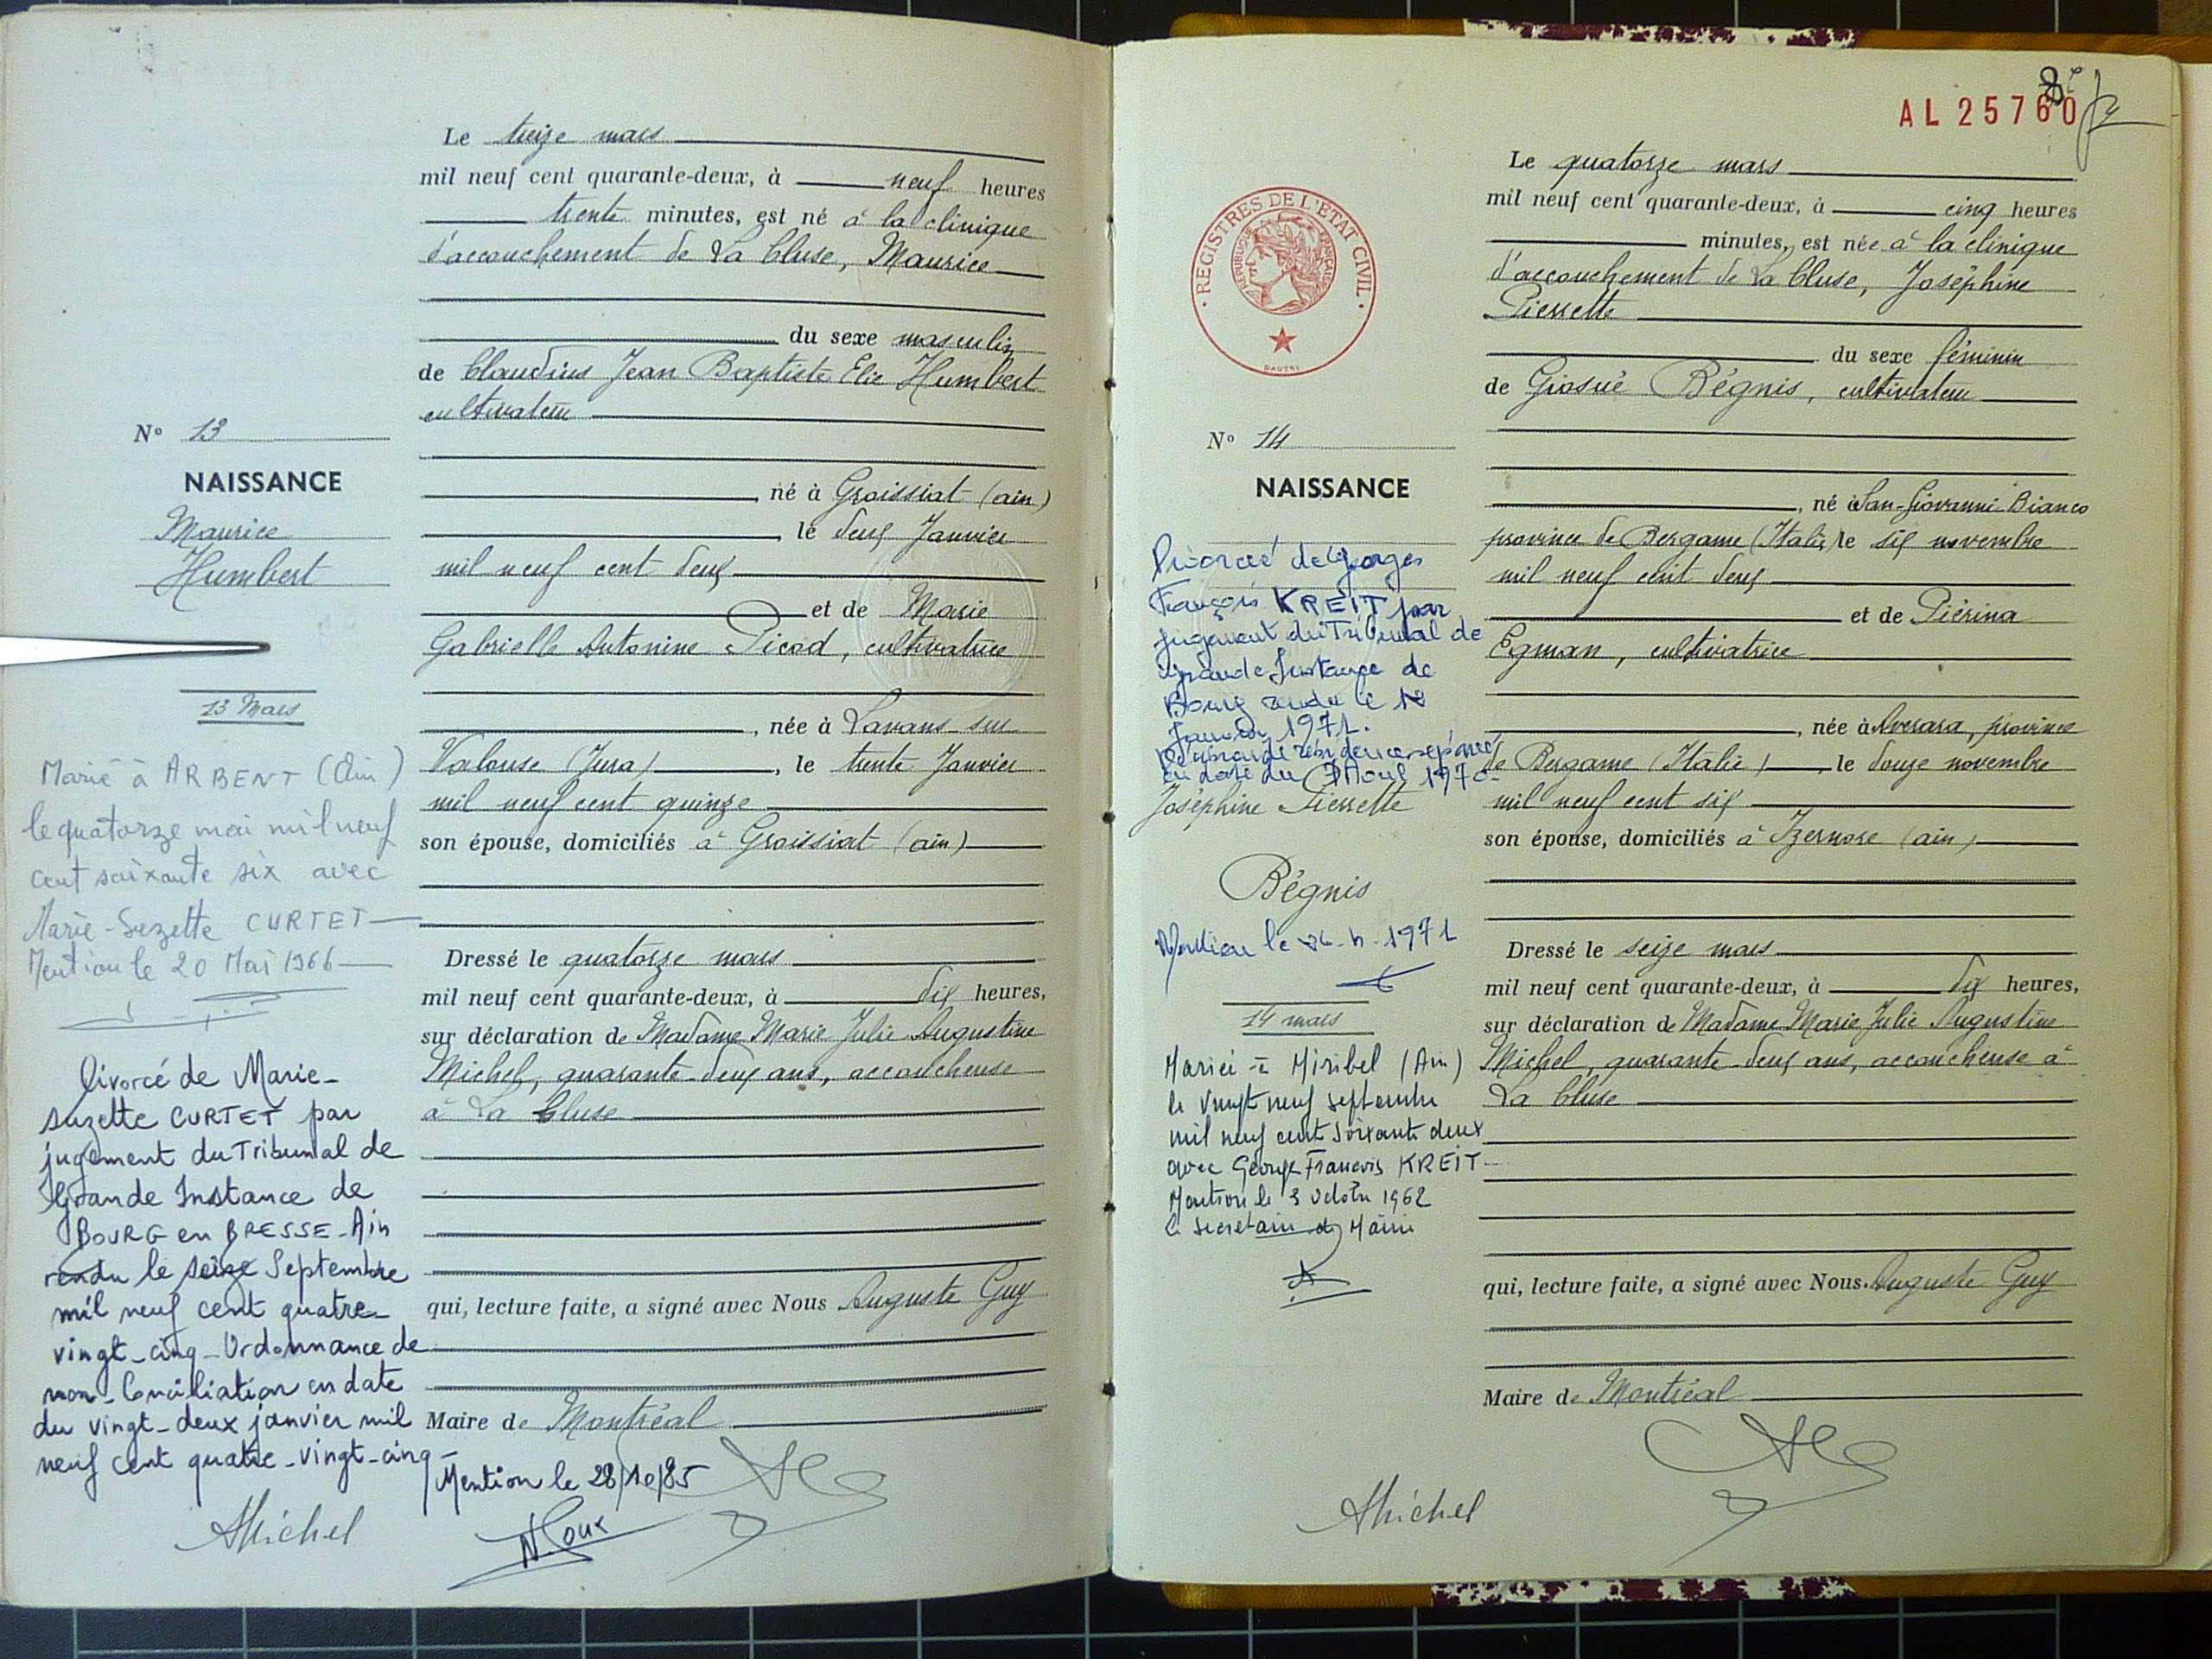 Le treize mars
mil neuf cent quarante-deux, à neuf heures
trente minutes, est né à la clinique
d'accouchement de La Cluse, Maurice
du sexe masculin
de Claudius Jean Baptiste Elie Humbert
cultivateur
né à Groissiat (ain)
, le deux Janvier
mil neuf cent deux
et de Marie
Gabrielle Antonine Picod, cultivatrice
, née à Lavans-sur
Valouse (Jura), le trente Janvier
mil neuf cent quinze
son épouse, domiciliés à Groissiat (ain)
Dressé le quatorze mars
mil neuf cent quarante-deux, à dix heures,
sur déclaration de Madame Marie Julie Augustine
Michel, quarante-deux ans, accoucheuse
à La Cluse
qui, lecture faite, a signé avec Nous Auguste Guy
Maire de Montréal
N° 13
NAISSANCE
Maurice
Humbert
13 Mars
Marié à ARBENT (Ain)
le quatorze mai mil neuf
cent soixante six avec
Marie-Suzette CURTET
Mention le 20 Mai 1966
Divorcé de Marie-
Suzette CURTET par
jugement du Tribunal de
Grande Instance de
BOURG en BRESSE-Ain
rendu le seize Septembre
mil neuf cent quatre-
vingt-cinq-Ordonnance de
non-Conciliation en date
du vingt-deux janvier mil
neuf cent quatre-vingt-cinq-
Mention le 28/10/85
AMichel
AL 25760
8e
REGISTRES DE L'ETAT CIVIL
REPUBLIQUE FRANÇAISE
Le quatorze mars
mil neuf cent quarante-deux, à cinq heures
minutes, est née à la clinique
d'accouchement de La Cluse, Joséphine
Pierrette
du sexe féminin
de Giosué Bégnis, cultivateur
, né à San-Giovanni-Bianco
province de Bergame (Italie) le six novembre
mil neuf cent deux
et de Piérina
Egman, cultivatrice
, née à Averara, province
de Bergame (Italie), le douze novembre
mil neuf cent six
son épouse, domiciliés à Izernore (ain)
Dressé le seize mars
mil neuf cent quarante-deux, à dix heures,
sur déclaration de Madame Marie Julie Augustine
Michel, quarante-deux ans, accoucheuse à
La Cluse
qui, lecture faite, a signé avec Nous. Auguste Guy
Maire de Montréal
N° 14
NAISSANCE
Divorcée de Georges
François KREIT par
jugement du Tribunal de
Grande Instance de
Bourg rendu le
Janvier 1971.
résidence séparée
en date du 7 Aout 1970-
Joséphine Pierrette
Bégnis
Mention le 1971
14 mars
Mariée à Miribel (Ain)
le vingt neuf septembre
mil neuf cent soixante deux
avec George Francois KREIT
Mention le 3 octobre 1962
Le secretaire de Mairie
AMichel